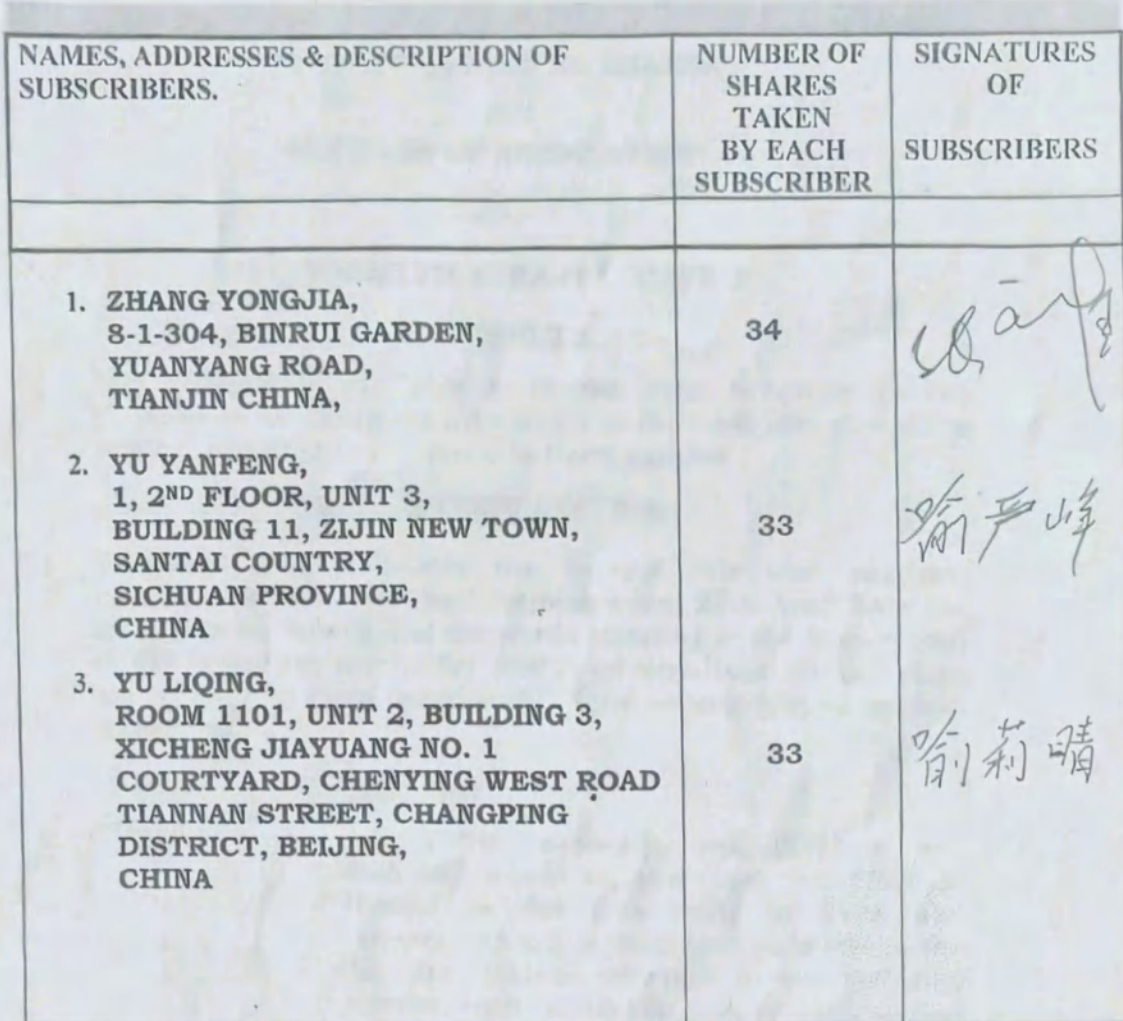 NAMES, ADDRESSES & DESCRIPTION OF
SUBSCRIBERS.
NUMBER OF
SHARES
TAKEN
BY EACH
SUBSCRIBER
SIGNATURES
OF
SUBSCRIBERS
1. ZHANG YONGJIA,
8-1-304, BINRUI GARDEN,
YUANYANG ROAD,
TIANJIN CHINA,
34
2. YU YANFENG,
1, 2ND FLOOR, UNIT 3,
BUILDING 11, ZIJIN NEW TOWN,
SANTAI COUNTRY,
SICHUAN PROVINCE,
CHINA
33
喻严峰
3. YU LIQING,
ROOM 1101, UNIT 2, BUILDING 3,
XICHENG JIAYUANG NO. 1
COURTYARD, CHENYING WEST ROAD
TIANNAN STREET, CHANGPING
DISTRICT, BEIJING,
CHINA
33
喻莉晴